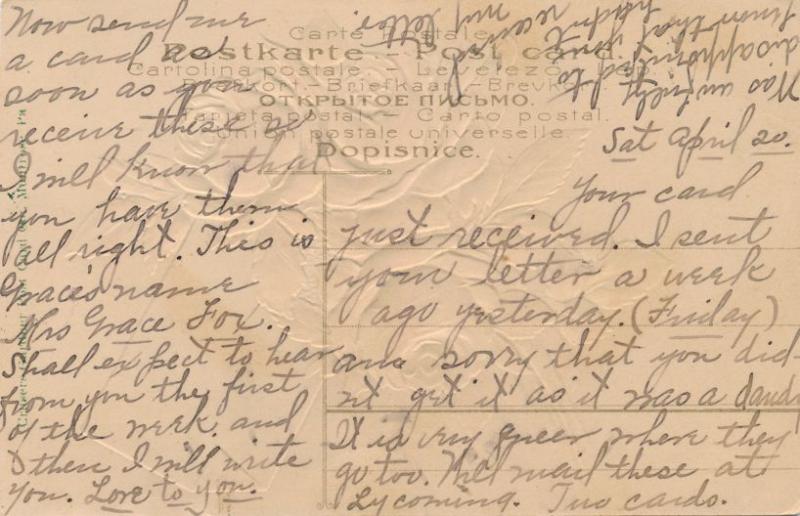 Carte Postale.
Postkarte – Post card.
Cartolina postale – Levelező-
-Briefkaart – Brevkort
ОТКРЫТОЕ ПИСЬМО.
Tarjeta postal – Carto postal.
Union postale universelle.
Dopisnice.
Sat April 20.
Your card
just received. I sent
your letter a week
ago yesterday. (Friday)
and sorry that you did-
nt get it as it was a dandy
It is very queer where they
go too. Will mail these at
Lycoming. Two cards.
Now send me
a card as
soon as you
receive these so
I will know that
you have them
all right. This is
Grace's name
Mrs Grace Fox.
Shall expect to hear
from you the first
of the week and
then I will write
you. Love to you.
Was awfully
disappointed to
know that you
hadn't
received
my letter